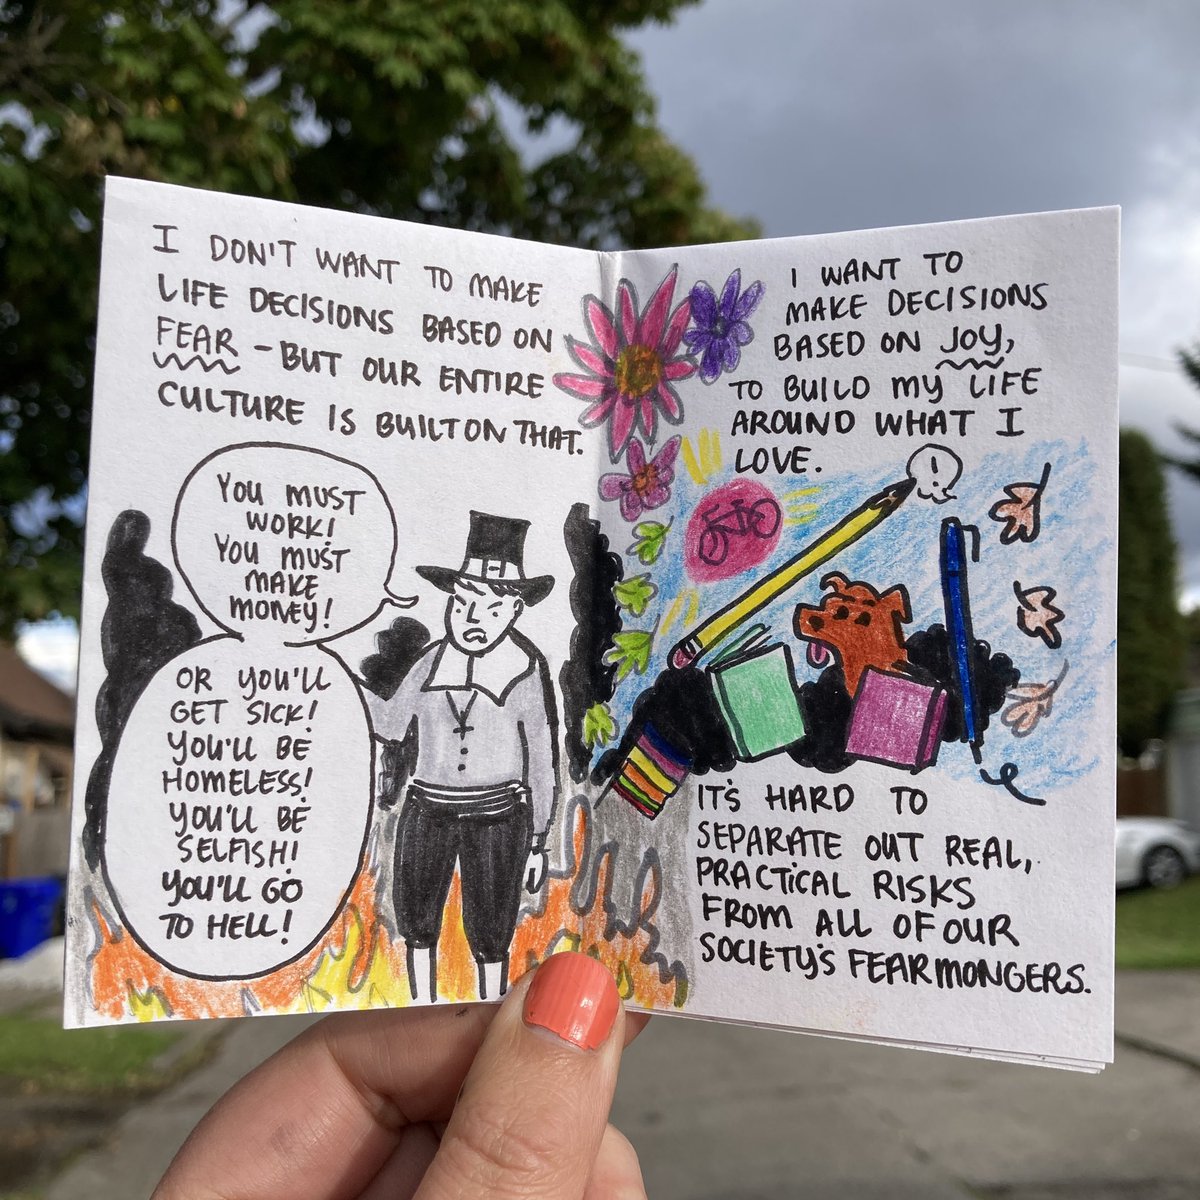 I DON'T WANT TO MAKE
LIFE DECISIONS BASED ON
FEAR - BUT OUR ENTIRE
CULTURE IS BUILT ON THAT.
YOU MUST
WORK!
YOU MUST
MAKE
MONEY!
OR YOU'LL
GET SICK!
YOU'LL BE
HOMELESS!
YOU'LL BE
SELFISH!
YOU'LL GO
TO HELL!
I WANT TO
MAKE DECISIONS
BASED ON JOY,
TO BUILD MY LIFE
AROUND WHAT I
LOVE.
!
IT'S HARD TO
SEPARATE OUT REAL,
PRACTICAL RISKS
FROM ALL OF OUR
SOCIETY'S FEARMONGERS.